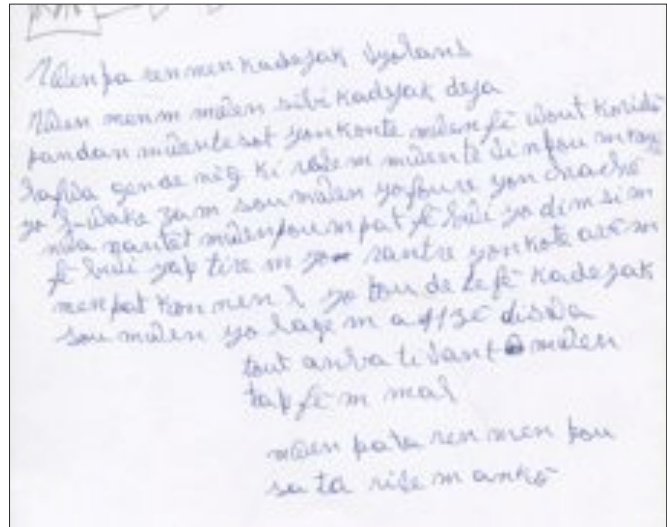 Mwen pa renmen kadejak vyolans
Mwen menm mwen sibi kadejak deja
pandan mwen te sot yon kote mwen fè wout koridò
lafwa gen de nèg ki rele m mwen te vin pou m kouri
yo brake zam sou mwen yo foure yon chache
nwa nan tèt mwen pou m pat fè brui yo di m si m
fè brui yap tire m yo rantre yon kote avè m
men pat konnen l yo tou de te fè kadejak
sou mwen yo lage m a 11zè diswa
tout anba ti vant mwen
tap fè m mal
mwen pa ta renmen pou
sa ta rive m ankò